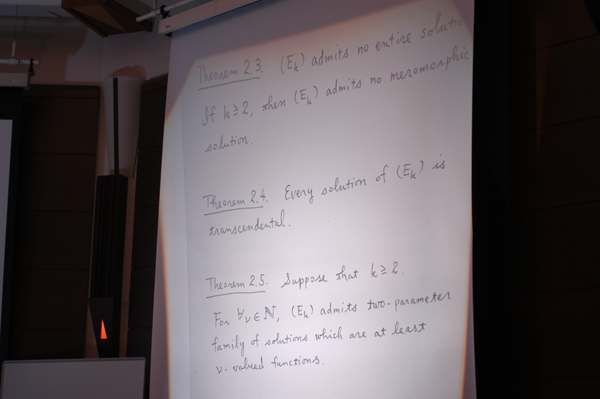 Theorem 2.3. (Eₖ) admits no entire soluti
If k ≥ 2, then (Eₖ) admits no meromorphic
solution.
Theorem 2.4. Every solution of (Eₖ) is
transcendental.
Theorem 2.5. Suppose that k ≥ 2.
For ∀ν ∈ ℕ, (Eₖ) admits two-parameter
family of solutions which are at least
ν-valued functions.